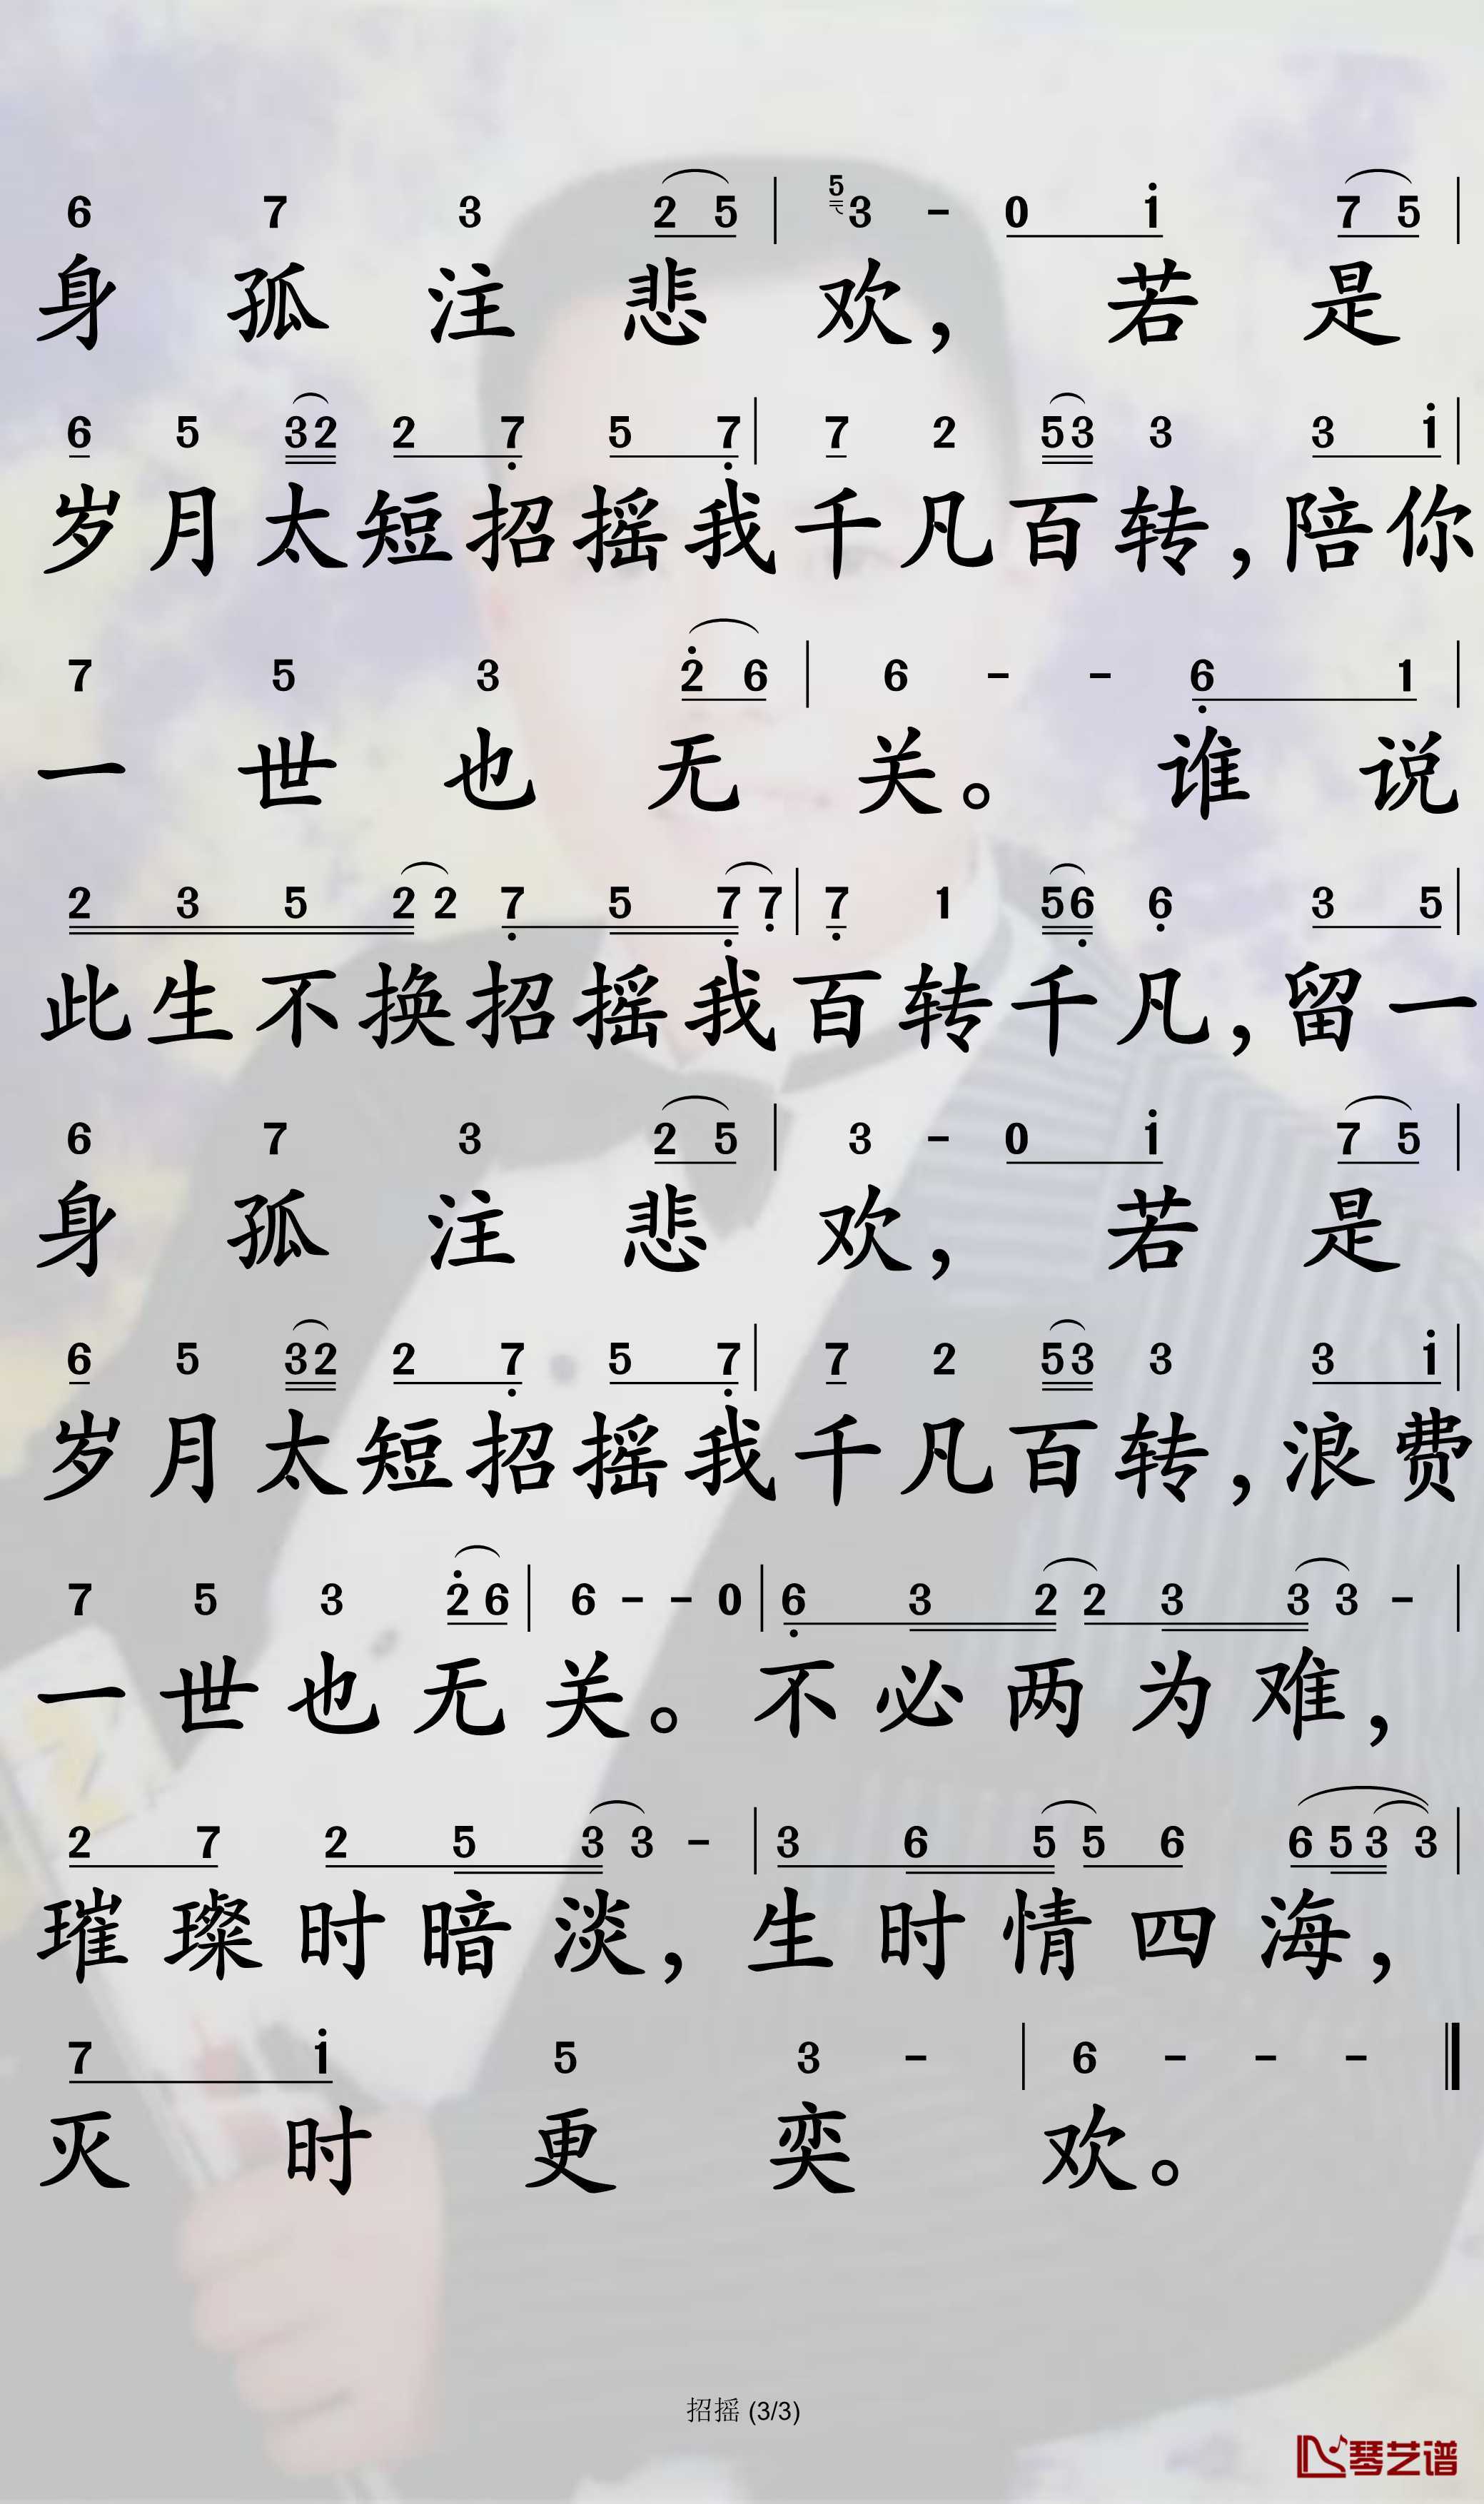 6 7 3 2 5 | 5 3 - 0 i 7 5 |
身孤注悲欢，若是
6 5 3 2 2 7 5 7 | 7 2 5 3 3 3 i |
岁月太短招摇我千凡百转，陪你
7 5 3 2 6 | 6 - - 6 1 |
一世也无关。谁说
2 3 5 2 2 7 5 7 7 | 7 1 5 6 6 3 5 |
此生不换招摇我百转千凡，留一
6 7 3 2 5 | 3 - 0 i 7 5 |
身孤注悲欢，若是
6 5 3 2 2 7 5 7 | 7 2 5 3 3 3 i |
岁月太短招摇我千凡百转，浪费
7 5 3 2 6 | 6 - - 0 | 6 3 2 2 3 3 3 - |
一世也无关。不必两为难，
2 7 2 5 3 3 - | 3 6 5 5 6 6 5 3 3 |
璀璨时暗淡，生时情四海，
7 i 5 3 - | 6 - - - ‖
灭时更奕欢。
招摇 (3/3)
琴艺谱